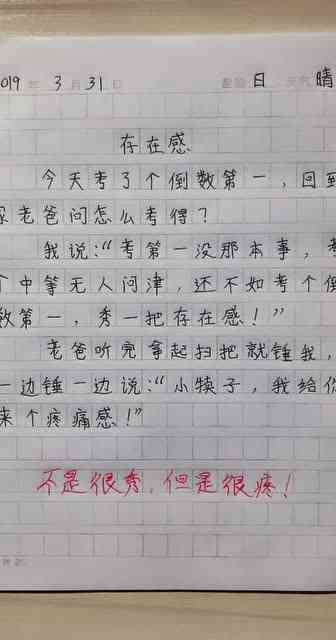 019 年 3 月 31 日 星期 日 天气 晴
存在感
今天考了个倒数第一，回到
家老爸问怎么考得？
我说：“考第一没那本事，考
个中等无人问津，还不如考个倒
数第一，秀一把存在感！”
老爸听完拿起扫把就锤我，
一边锤一边说：“小犊子，我给你
来个疼痛感！”
不是很秀，但是很疼！